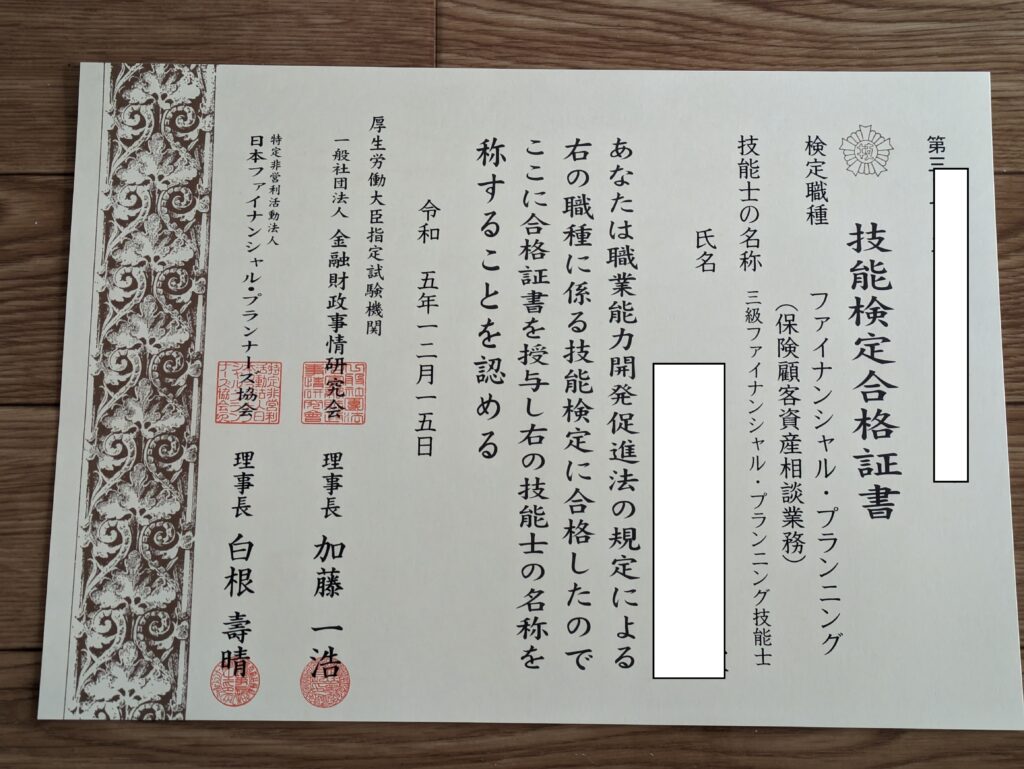 第三
技能検定合格証書
検定職種 ファイナンシャル・プランニング
(保険顧客資産相談業務)
技能士の名称 三級ファイナンシャル・プランニング技能士
氏名
あなたは職業能力開発促進法の規定による
右の職種に係る技能検定に合格したので
ここに合格証書を授与し右の技能士の名称を
称することを認める
令和 五年一二月一五日
厚生労働大臣指定試験機関
一般社団法人 金融財政事情研究会 理事長 加藤 一浩
特定非営利活動法人
日本ファイナンシャル・プランナーズ協会 理事長 白根 壽晴